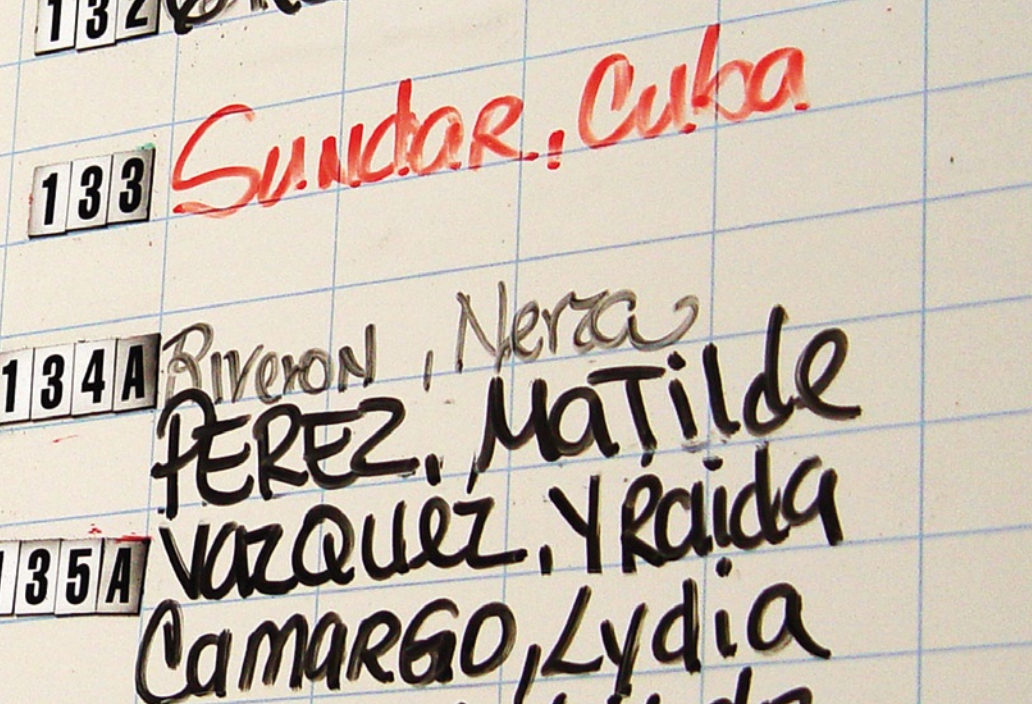 132
133 Sundar, Cuba
134A Riveron, Nerza
PEREZ, Matilde
135A Vazquez, Yraida
Camargo, Lydia